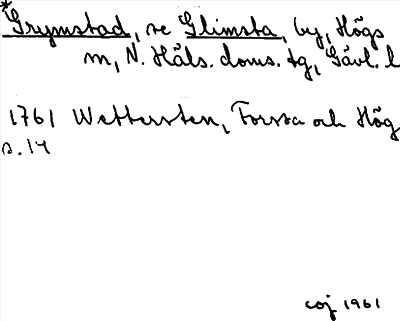 *Grymstad, se Glimsta, by, Högs
sn, N. Häls. doms. tg, Gävl. l
1761 Wettersten, Forssa och Hög
s. 14
coj 1961